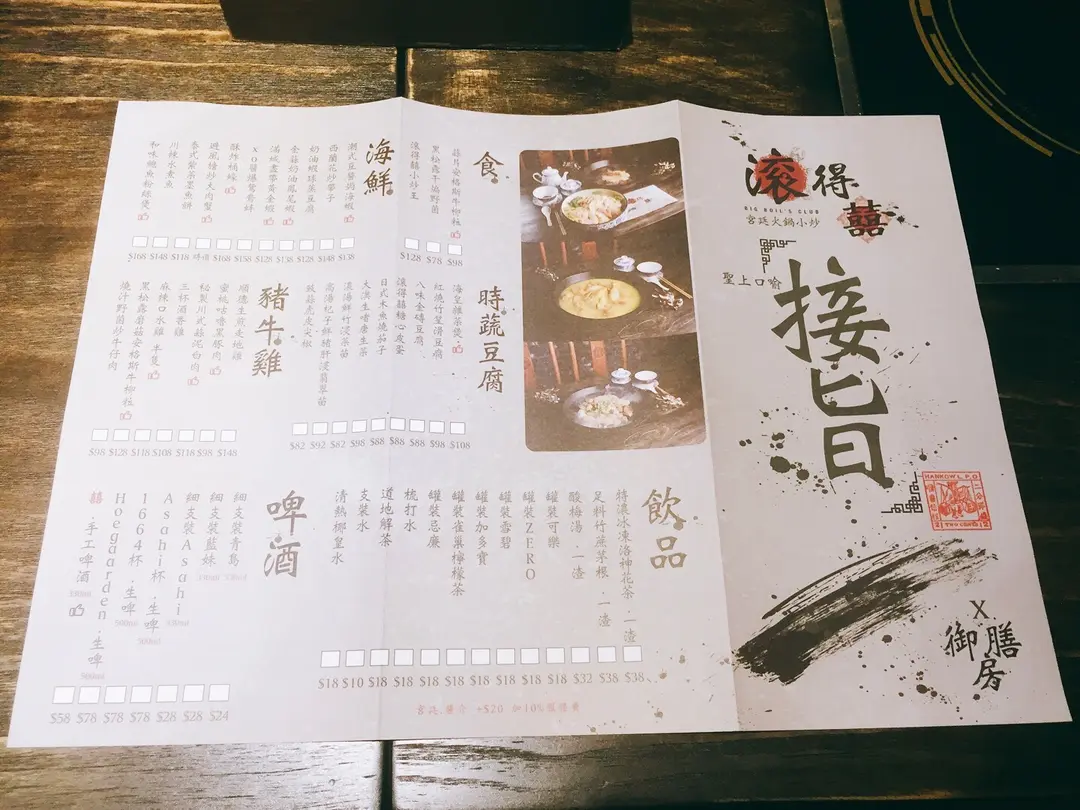 滾得囍
BIG BOIL'S CLUB
宮廷火鍋小炒
聖上口喻
接旨
HANKOW L.P.O
TWO CENTS
X
御膳房
食
蒜片安格斯牛柳粒
黑松露干煸野菌
滾得囍小炒王
$128 $78 $98
海鮮
潮式豆醬焗海蝦
西蘭花炒帶子
奶油蝦球蒸豆腐
金菇奶油鳳尾蝦
滿城盡帶黃金蝦
xo醬爆鴛鴦蚌
酥炸桶蠔
避風糖炒大肉蟹
香式紫茶墨魚餅
川辣水煮魚
和味鹹魚粉絲煲
$168 $148 $118 時價 $168 $158 $128 $138 $128 $148 $138
時蔬豆腐
海皇雜菜煲
紅燒竹笙滑豆腐
八味金磚豆腐
滾得囍糖心皮蛋
日式木魚燒茄子
大漠生啫唐生菜
濃湯鮮竹浸菜苗
高湯杞子鮮豬肝浸翡翠苗
$82 $92 $82 $98 $88 $88 $88 $98 $108
豬牛雞
順德生煎走地雞
蜜桃咕嚕黑豚肉
秘製川式蒜泥白肉
三杯酒香雞
麻辣口水雞 半隻
黑松露蘑菇安格斯牛柳粒
燒汁野菌炒牛仔肉
$98 $128 $118 $108 $118 $98 $148
飲品
特濃冰凍洛神花茶.一渣
足料竹蔗茅根.一渣
酸梅湯.一渣
罐裝可樂
罐裝ZERO
罐裝雪碧
罐裝加多寶
罐裝雀巢檸檬茶
罐裝忌廉
梳打水
道地解茶
支裝水
清熱椰皇水
$18 $10 $18 $18 $18 $18 $18 $18 $18 $18 $32 $38 $38
啤酒
細支裝青島 330ml
細支裝藍妹 330ml
細支裝Asahi 330ml
Asahi杯.生啤 500ml
1664杯.生啤 500ml
Hoegaarden.生啤 500ml
囍.手工啤酒 330ml
$58 $78 $78 $78 $28 $28 $24
+$20 加10%服務費